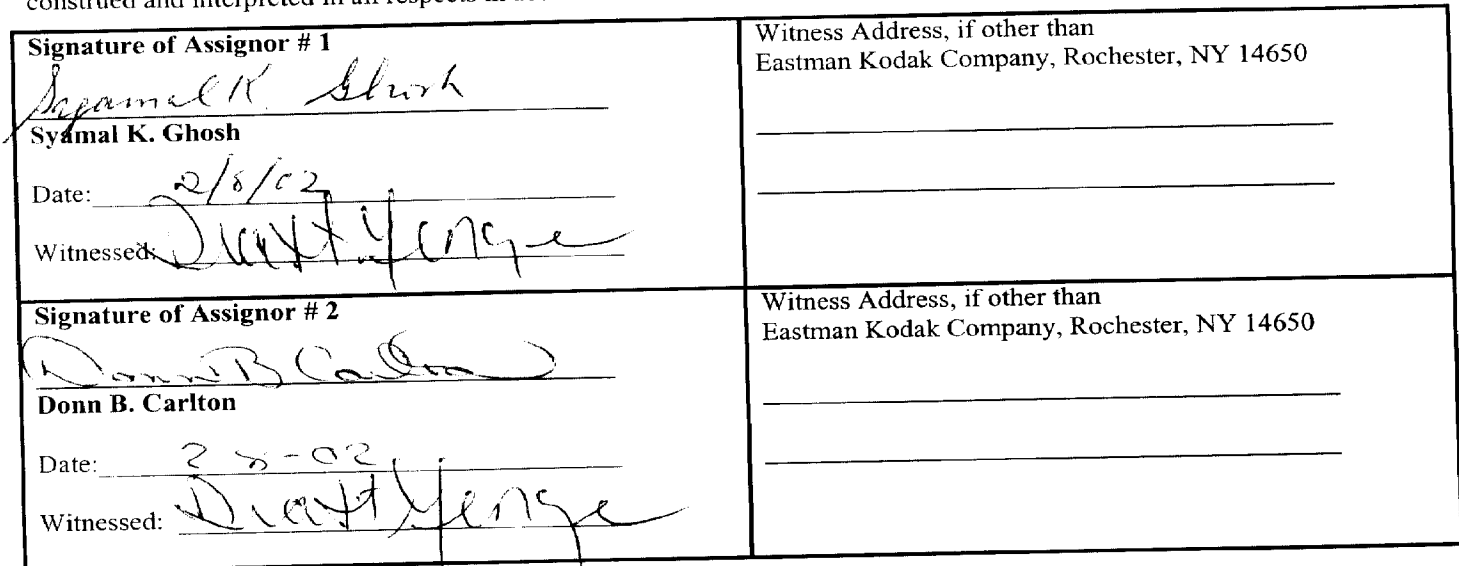 construed and interpreted in all respects in
Signature of Assignor # 1
Syamal K. Ghosh
Syamal K. Ghosh
Date: 2/8/02
Witnessed:
Witness Address, if other than
Eastman Kodak Company, Rochester, NY 14650
Signature of Assignor # 2
Donn B Carlton
Donn B. Carlton
Date: 2-8-02
Witnessed:
Witness Address, if other than
Eastman Kodak Company, Rochester, NY 14650